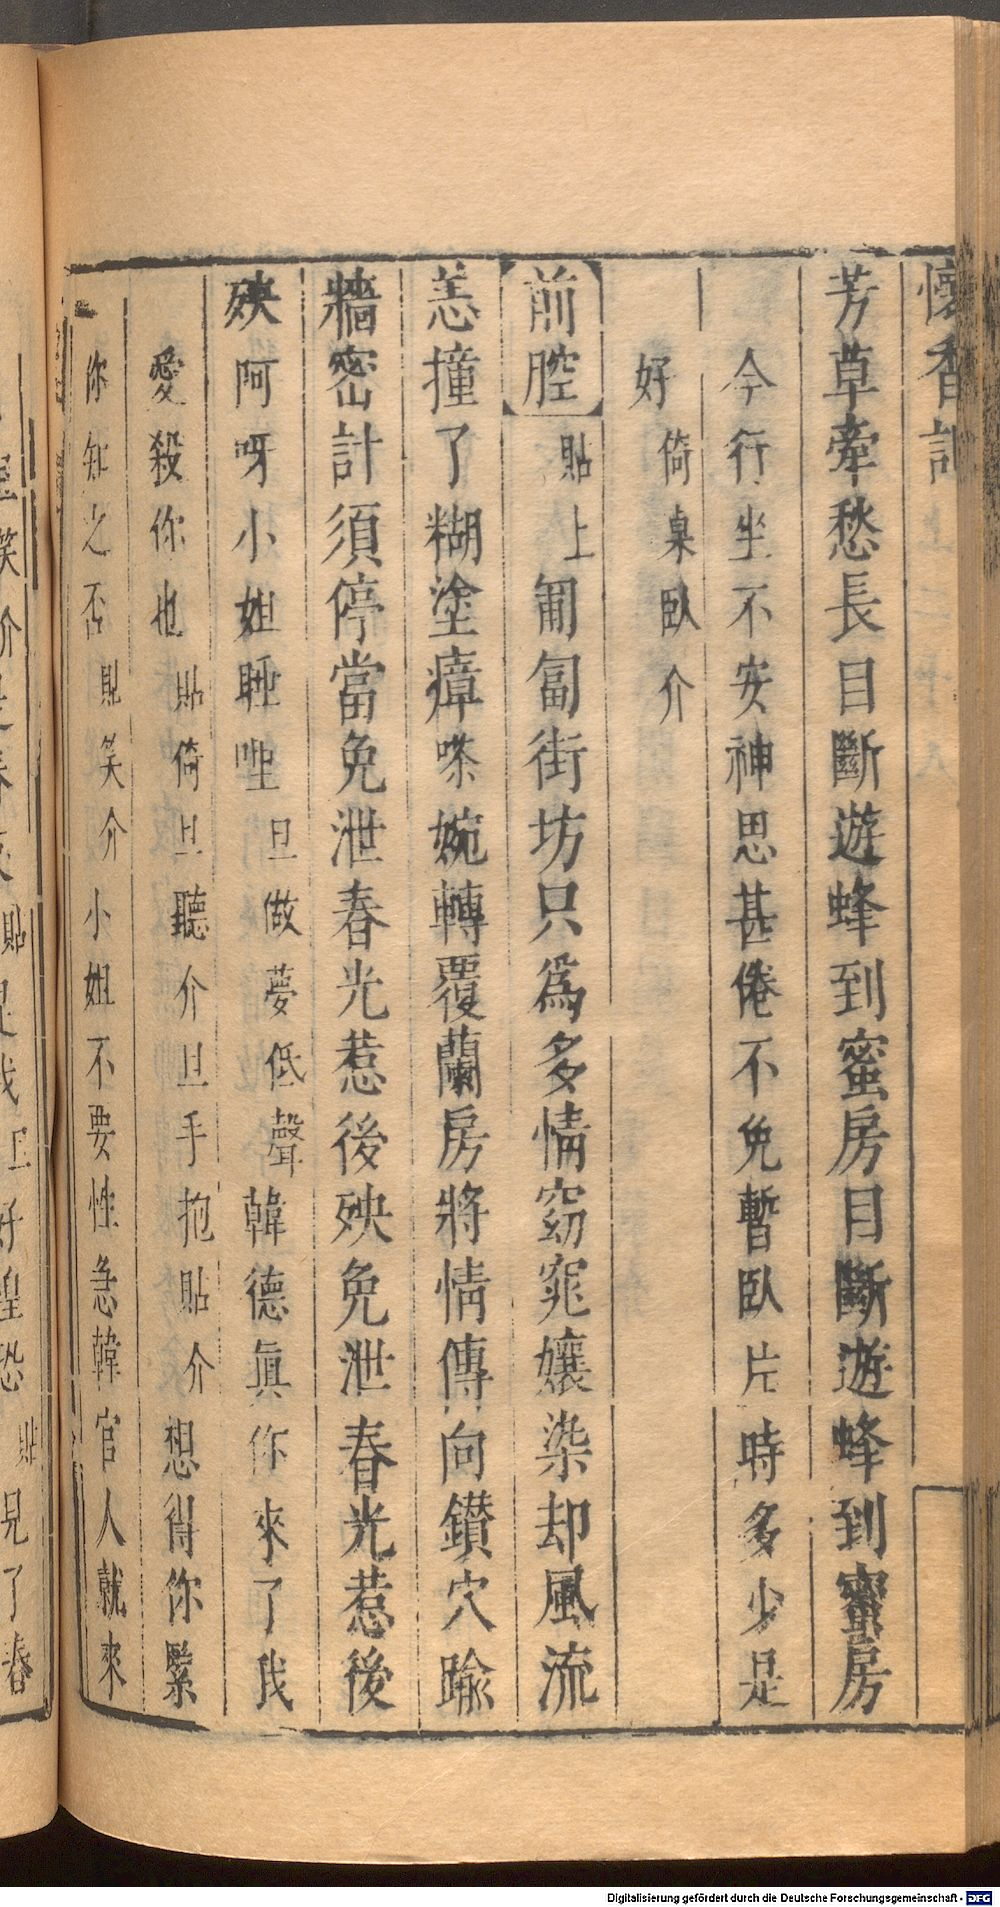 懷香記
芳草牽愁長目斷遊蜂到蜜房目斷遊蜂到蜜房
今行坐不安神思甚倦不免暫臥片時多少是
好倚桌臥介
前腔貼上匍匐街坊只為多情窈窕孃染却風流
恙撞了糊塗瘴嗏婉轉覆蘭房將情傳向鑚穴踰
牆密計須停當免泄春光惹後殃免泄春光惹後
殃阿呀小姐睡哩旦做夢低聲韓德眞你來了我
愛殺你也貼倚旦聽介旦手抱貼介想得你緊
你知之否貼笑介小姐不要性急韓官人就來
Digitalisierung gefördert durch die Deutsche Forschungsgemeinschaft - DFG